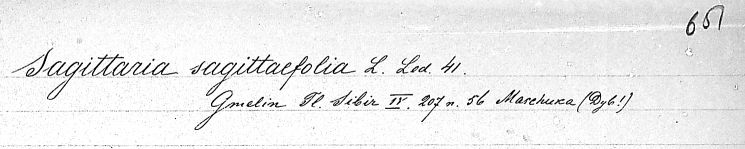 651
Sagittaria sagittaefolia L. Led. 41.
Gmelin Fl. Sibir IV. 207 n. 56 Maschuka (Dyb!)